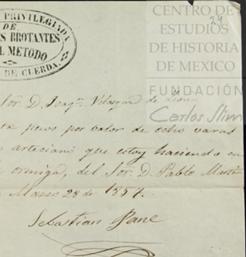 PRIVILEGIADA
DE
S BROTANTES
L METODO
DE CUERDA.
CENTRO DE
ESTUDIOS
DE HISTORIA
DE MEXICO
FUNDACIÓN
Carlos Slim
24
Sor. D. Joaqn. Velazquez de Leon
pesos por valor de ocho varas
artesiano que estoy haciendo en
del Sor. D. Pablo
Marzo 28 de 1854.
Sebastian Pane